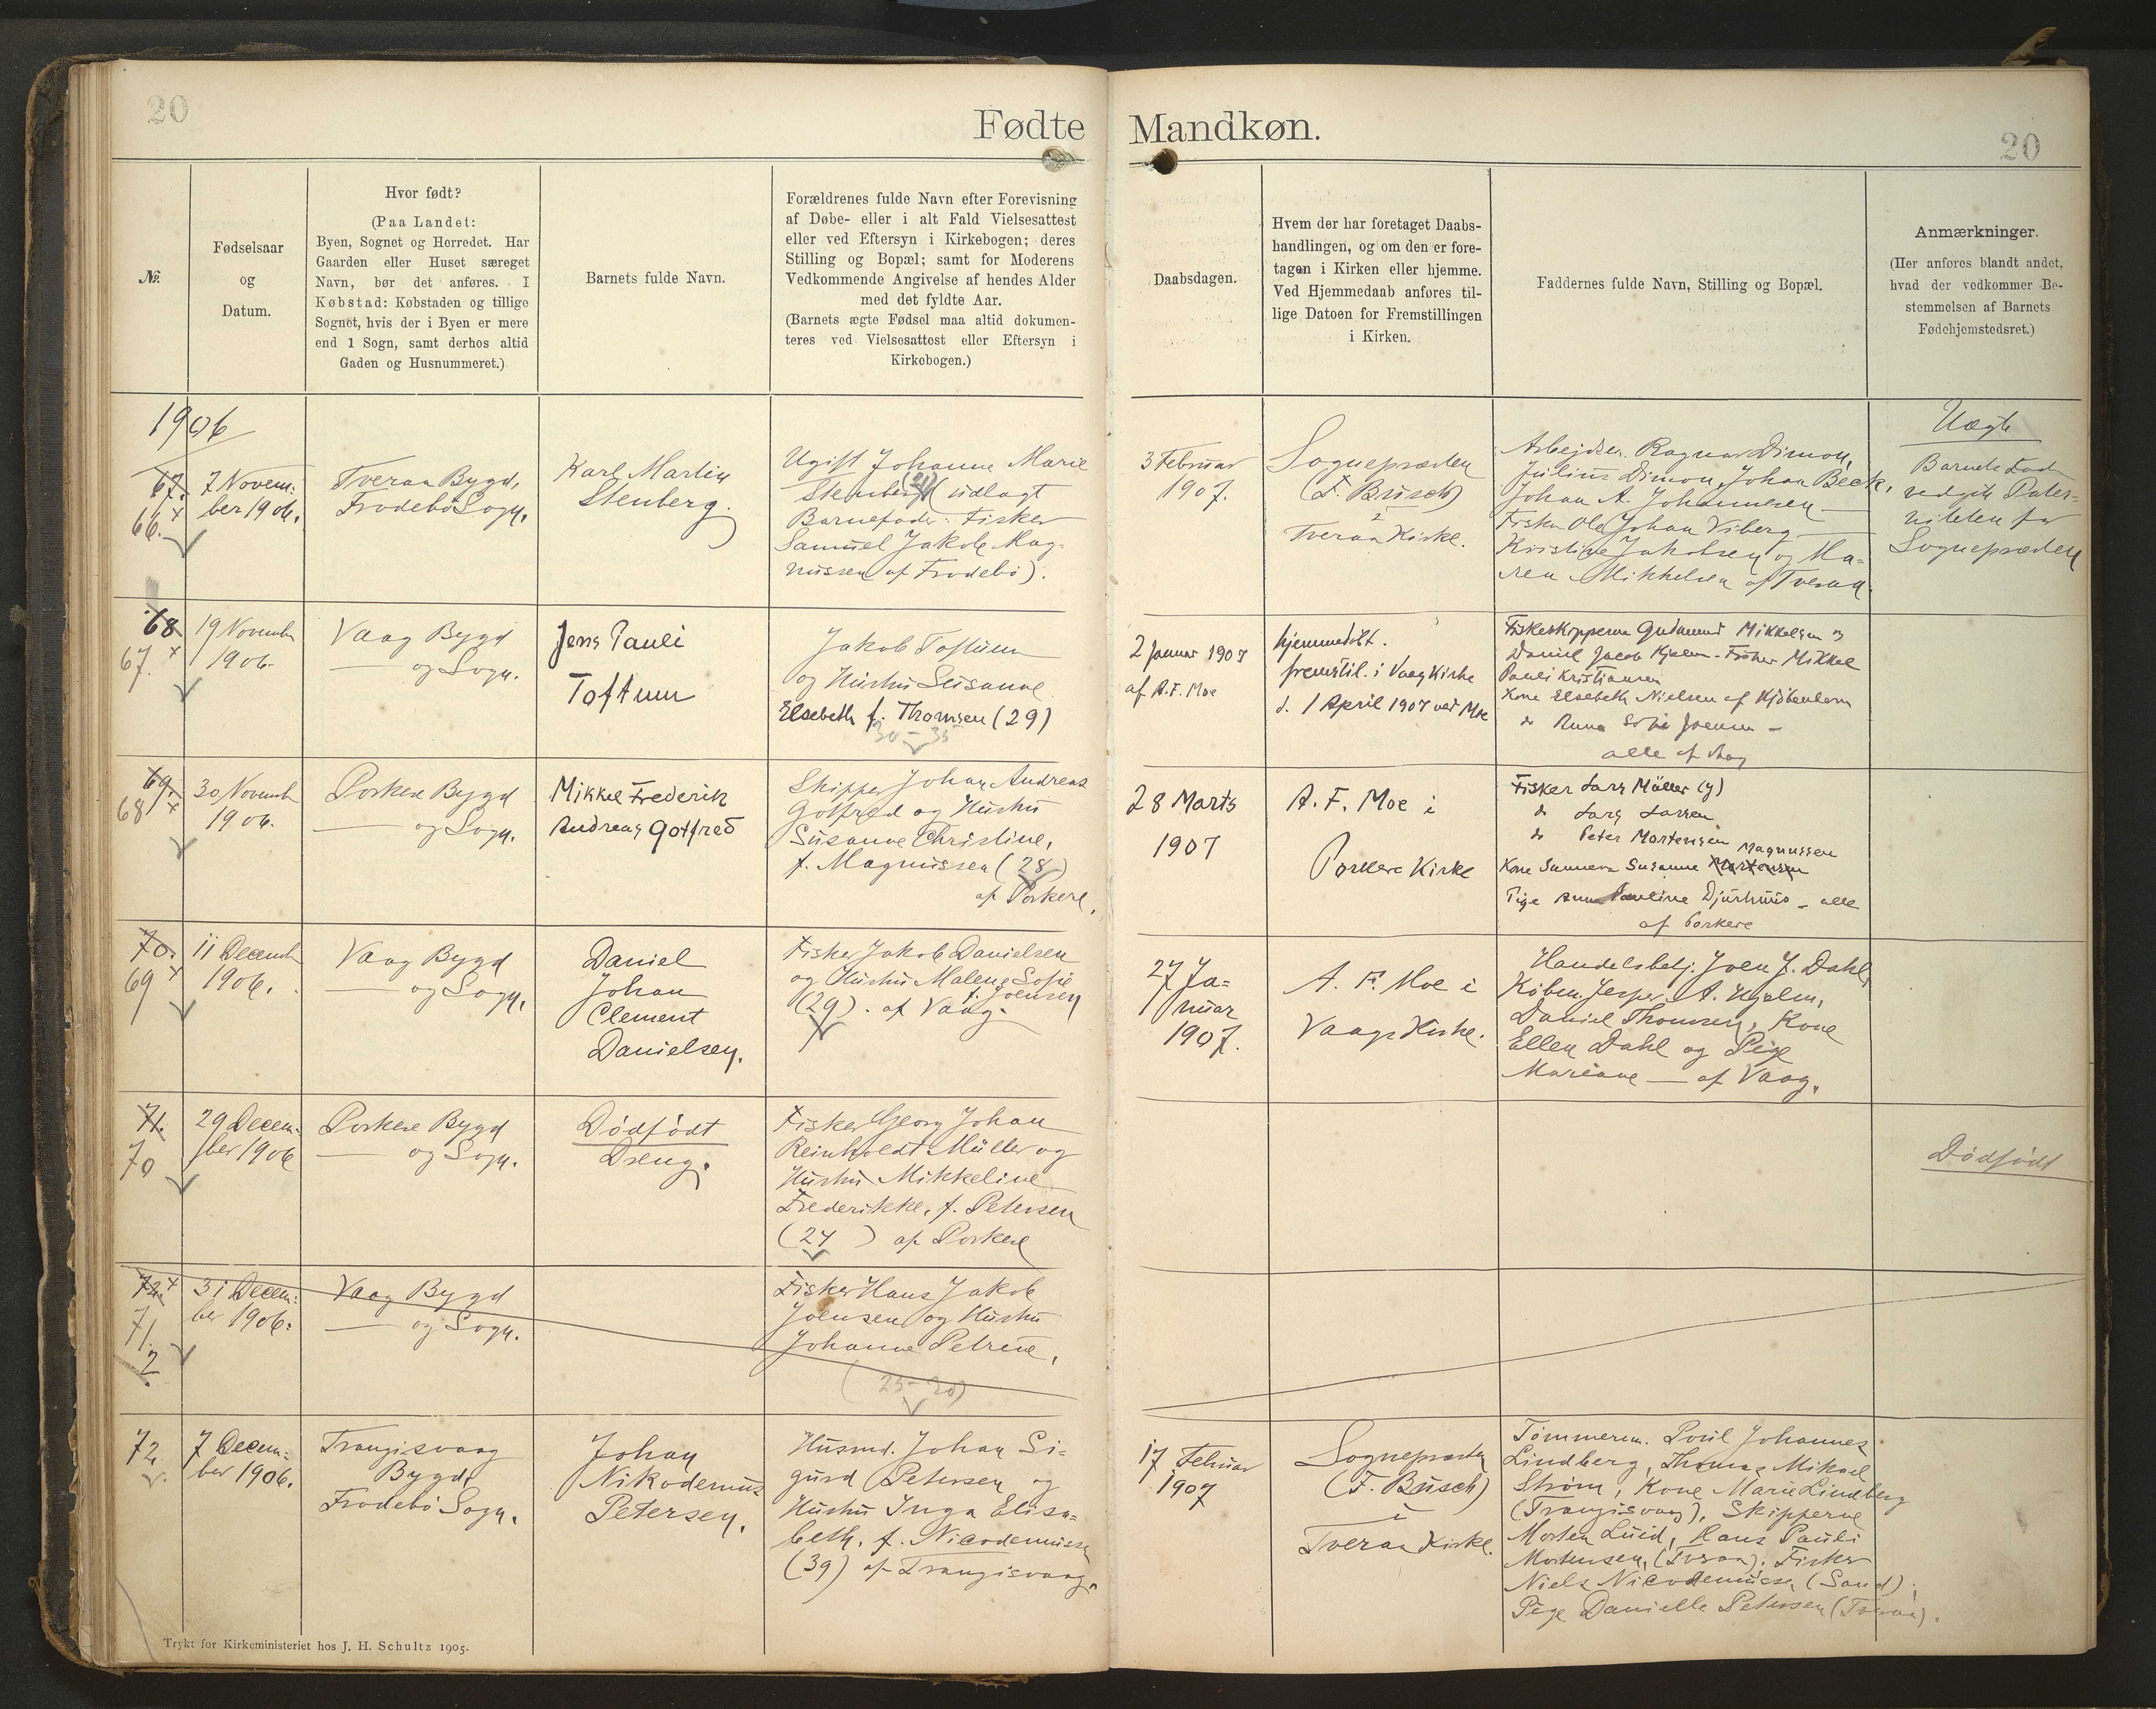 20
Fødte
Mandkøn.
20
№.
Fødselsaar
og
Datum.
Hvor født?
(Paa Landet:
Byen, Sognet og Herredet. Har
Gaarden eller Huset særeget
Navn, bør det anføres. I
Købstad: Købstaden og tillige
Sognet, hvis der i Byen er mere
end 1 Sogn, samt derhos altid
Gaden og Husnummeret.)
Barnets fulde Navn.
Forældrenes fulde Navn efter Forevisning
af Døbe- eller i alt Fald Vielsesattest
eller ved Eftersyn i Kirkebogen; deres
Stilling og Bopæl; samt for Moderens
Vedkommende Angivelse af hendes Alder
med det fyldte Aar.
(Barnets ægte Fødsel maa altid dokumen-
teres ved Vielsesattest eller Eftersyn i
Kirkebogen.)
Daabsdagen.
Hvem der har foretaget Daabs-
handlingen, og om den er fore-
tagen i Kirken eller hjemme.
Ved Hjemmedaab anføres til-
lige Datoen for Fremstillingen
i Kirken.
Faddernes fulde Navn, Stilling og Bopæl.
Anmærkninger.
(Her anføres blandt andet,
hvad der vedkommer Be-
stemmelsen af Barnets
Fødehjemstedsret.)
1906
67.
66.
7 Novem-
ber 1906.
Tveraa Bygd,
Frodebö Sogn.
Karl Martin
Stenberg.
Ugift Johanne Marie
Stenberg (21) (udlagt
Barnefader: Fisker
Samuel Jakob Mag-
nussen af Frodebö).
3 Februar
1907.
Sognepræsten
(F. Busch)
i
Tveraa Kirke.
Arbejdsm. Ragnar Dimon,
Julius Dimon, Johan Beck,
Johan A. Johannesen —
Fisker Ole Johan Viberg —
Kristine Jakobsen og Ma-
ren Mikkelsen af Tveraa.
Uægte
Barnets Fader
vedgik Pater-
niteten for
Sognepræsten
68
67.
19 November
1906.
Vaag Bygd
— og Sogn.
Jens Pauli
Toftum
Jakob Toftum
og Hustru Susanne
Elsebeth f. Thomsen (29)
30-35
2 Januar 1907
af A. F. Moe
hjemmedöbt.
fremstil. i Vaag Kirke
d. 1 April 1907 ved Moe
Fiskeskipperne Gudmund Mikkelsen og
Daniel Jacob Hjelm - Fisker Mikkel
Pauli Kristiansen
Kone Elsebeth Nielsen af Kjöbenhavn
do Anna Sofie Joensen -
alle af Vaag
69.
68
30 November
1906.
Porkere Bygd
— og Sogn.
Mikkel Frederik
Andreas Gotfred
Skipper Johan Andreas
Gotfred og Hustru
Susanne Christine,
f. Magnussen (28)
af Porkere.
28 Marts
1907
A. F. Moe i
Porkere Kirke
Fisker Lars Müller (y)
do Lars Larsen
do Peter Mortensen
Magnussen
Kone Sunneva Susanne Mortensen
Pige Anna Pauline Djurhuus - alle
af Porkere
70.
69
11 December
1906.
Vaag Bygd
— og Sogn.
Daniel
Johan
Clement
Danielsen.
Fisker Jakob Danielsen
og Hustru Malene Sofie
f. Joensen
(29). af Vaag.
27 Ja-
nuar
1907.
A. F. Moe i
Vaags Kirke.
Handelsbetj. Joen J. Dahl,
Købm. Jesper A. Hjelm,
Daniel Thomsen, Kone
Ellen Dahl og Pige
Mariane — af Vaag.
71.
70
29 Decem-
ber 1906
Porkere Bygd
— og Sogn.
Dödfödt
Dreng.
Fisker Georg Johan
Reinholdt Müller og
Hustru Mikkeline
Frederikke, f. Petersen
(24) af Porkere
Dödfödt
72.
71.
2
31 Decem-
ber 1906.
Vaag Bygd
— og Sogn.
Fisker Hans Jakob
Joensen og Hustru
Johanne Petrine,
(25-30)
72
7 Decem-
ber 1906.
Trangisvaag
Bygd,
Frodebö Sogn.
Johan
Nikodemus
Petersen.
Husmd. Johan Si-
gurd Petersen og
Hustru Inga Elisa-
beth, f. Nicodemussen
(39) af Trangisvaag.
17 Februar
1907
Sognepræsten
(F. Busch)
i
Tveraa Kirke.
Tömmerm. Poul Johannes
Lindberg, Thomas Mikael
Ström, Kone Marie Lindberg
(Trangisvaag), Skipperne
Morten Luid, Hans Pauli
Mortensen, (Tveraa), Fisker
Niels Nicodemussen (Sand),
Pige Danielle Petersen (Tveraa).
Trykt for Kirkeministeriet hos J. H. Schultz 1905.